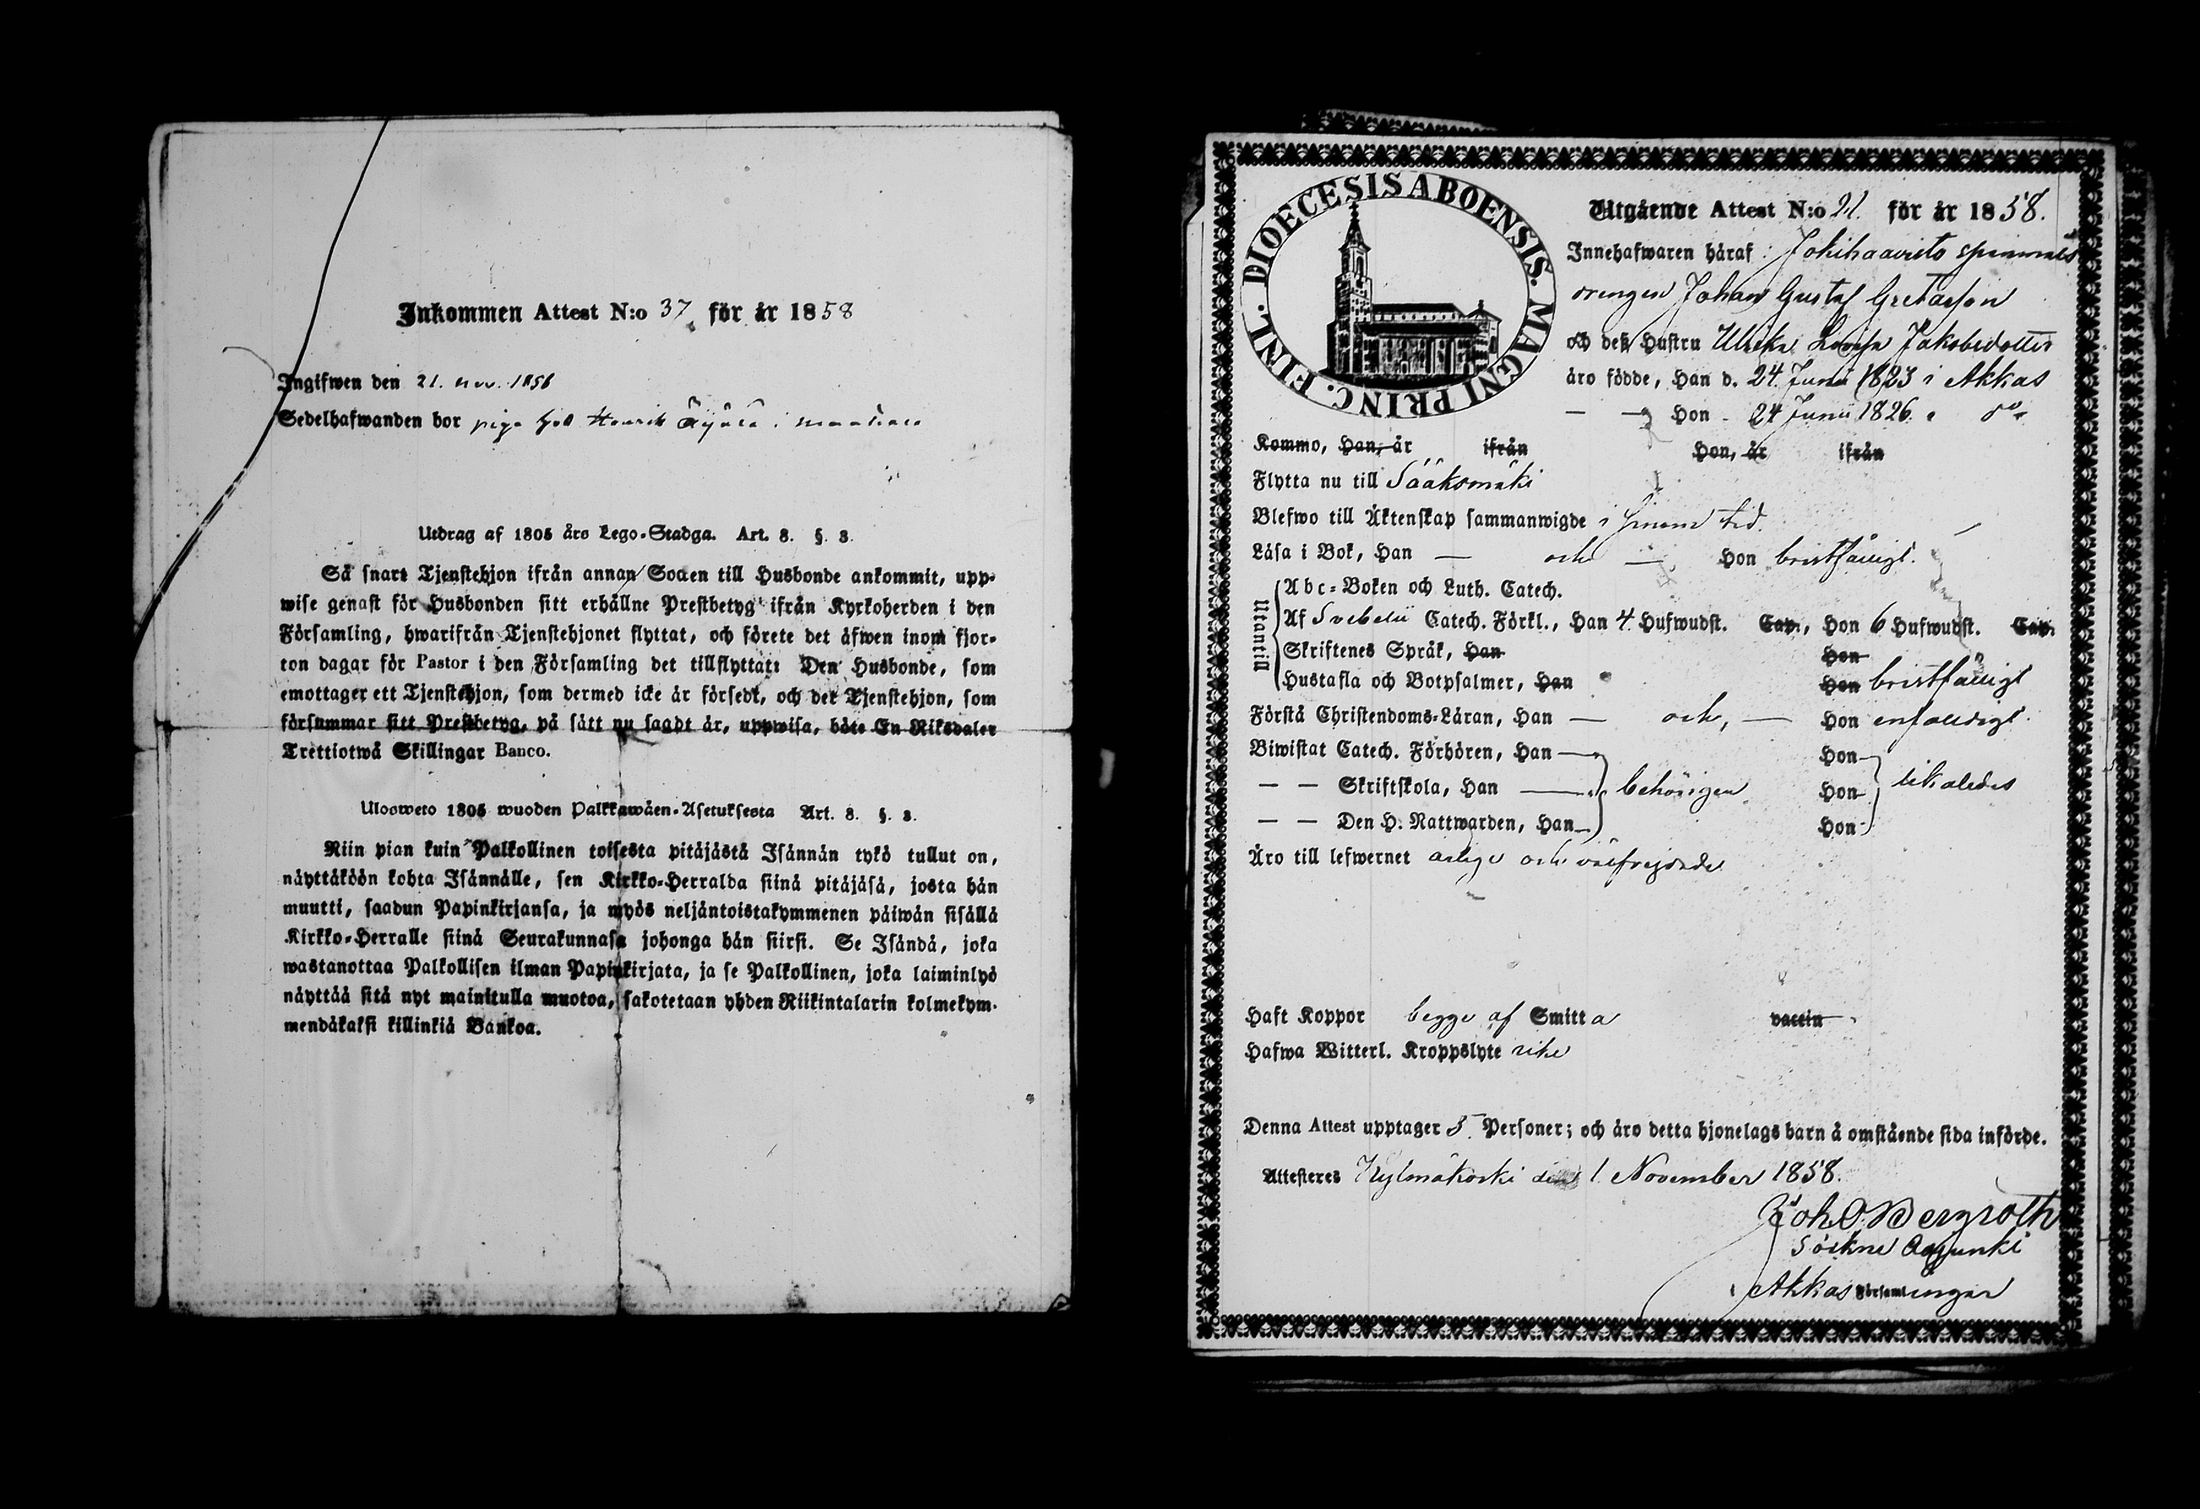 Inkommen Attest N:o 37 för år 1858
Ingifwen den 21. nov. 1858
Sedelhafwanden bor piga hos Henrik Äijälä i
Utdrag af 1805 års Lego-Stadga. Art. 8. §. 3.
Så snart Tjenstehjon ifrån annan Socken till Husbonde ankommit, upp-
wise genast för Husbonden sitt erhållne Prestbetyg ifrån Kyrkoherden i den
Församling, hwarifrån Tjenstehjonet flyttat, och förete det äfwen inom fjor-
ton dagar för Pastor i den Församling det tillflyttat: Den Husbonde, som
emottager ett Tjenstehjon, som dermed icke är försedt, och det Tjenstehjon, som
försummar sitt Prestbetyg, på sätt nu sagdt är, uppwisa, böte En Riksdaler
Trettiotwå Skillingar Banco.
Ulosweto 1805 wuoden Palkkawäen-Asetuksesta Art. 8. §. 3.
Niin pian kuin Palkollinen toisesta pitäjästä Isännän tykö tullut on,
näyttäköön kohta Isännälle, sen Kirkko-Herralda siinä pitäjäsä, josta hän
muutti, saadun Papinkirjansa, ja myös neljäntoistakymmenen päiwän sisällä
Kirkko-Herralle siinä Seurakunnasa johonga hän siirsi. Se Isändä, joka
wastanottaa Palkollisen ilman Papinkirjata, ja se Palkollinen, joka laiminlyö
näyttää sitä nyt mainitulla muotoa, sakotetaan yhden Riikintalarin kolmekym-
mendäkaksi killinkiä Bankoa.
DIOECESIS ABOENSIS. MAGNI PRINC. FINL.
Utgående Attest N:o 21. för år 1858.
Innehafwaren häraf: Jokihaavisto
drengen Johan Gustaf Gretasson
och dess Hustru Ulrika Lovisa Jakobsdotter
äro födde, Han d. 24 Junii 1823 i Akkas
— — Hon - 24 Junii 1826. i do
Kommo, Han, är ifrån Hon, är ifrån
Flytta nu till Sääksmäki
Blefwo till Äktenskap sammanwigde i sinom tid.
Läsa i Bok, Han — och — Hon bristfälligt.
Utantill
Abc-Boken och Luth. Catech.
Af Svebelii Catech. Förkl., Han 4 Hufwudst. Cap., Hon 6 Hufwudst. Cap.
Skriftenes Språk, Han Hon
Hustafla och Botpsalmer, Han Hon bristfälligt
Förstå Christendoms-Läran, Han — och, — Hon enfaldigt.
Biwistat Catech. Förhören, Han — Hon
— — Skriftskola, Han — behörigen Hon likaledes
— — Den H. Nattwarden, Han Hon
Äro till lefwernet ärlige och välfrejdade
Haft Koppor begge af Smitta vaccin
Hafwa Witterl. Kroppslyte icke
Denna Attest upptager 5 Personer; och äro detta hjonelags barn å omstående sida införde.
Attesteres Kylmäkoski den 1 November 1858.
Joh. O. Bergroth
Akkas Församlingar